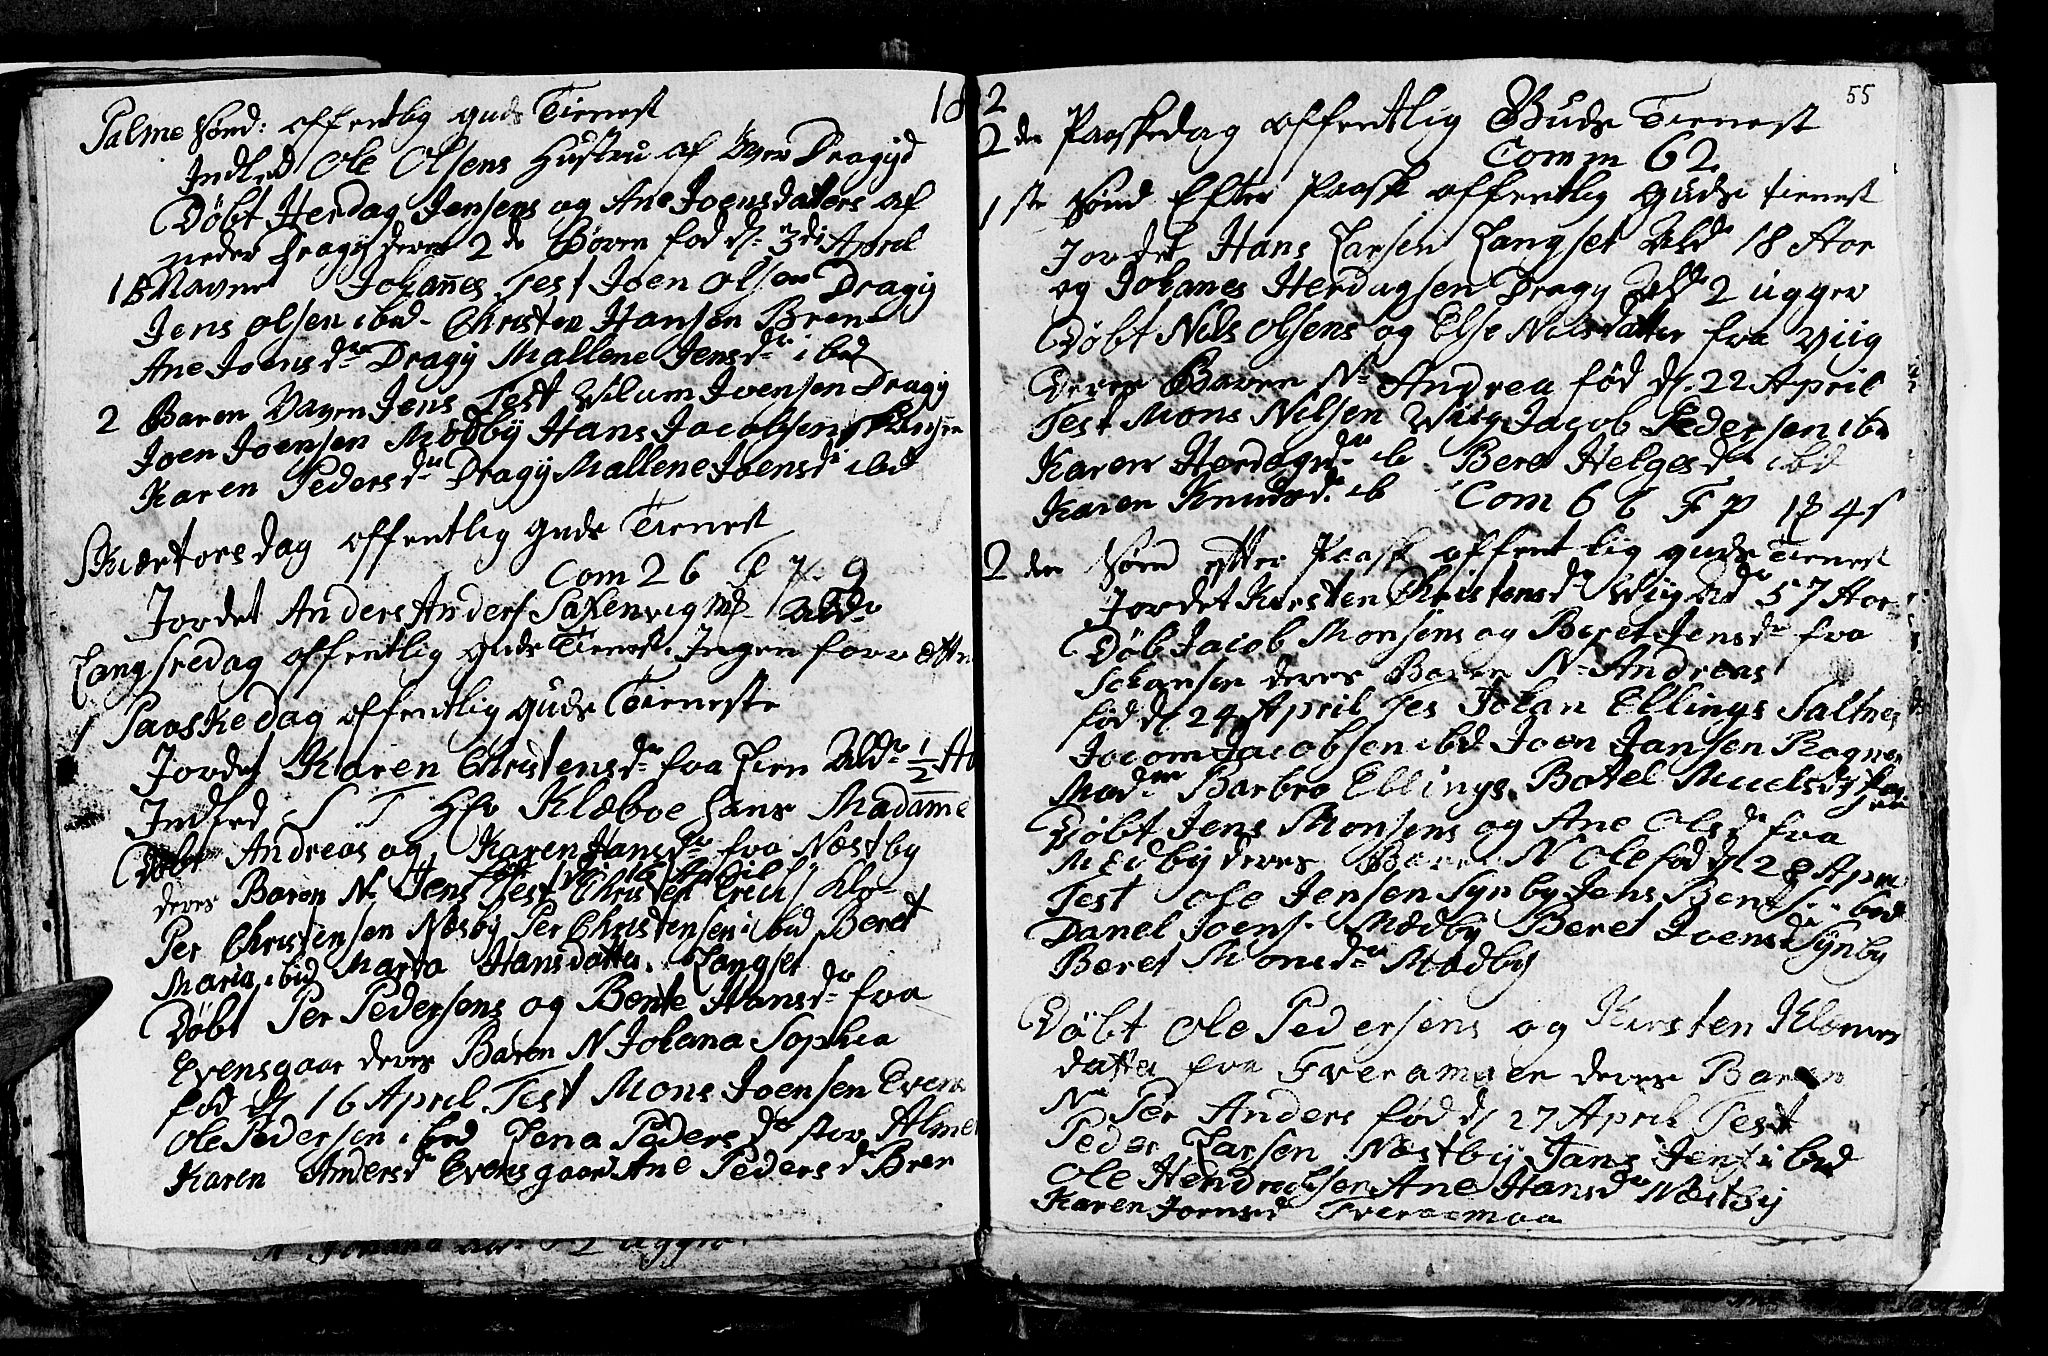 Palme sönd: offentlig guds Tienest
18
Indled Ole Olsens Hustru af Øver Dragÿd
Döbt Herdag Jensens og Ane Joensdatters af
neder Dragÿ deres 2 de Børen fød d: 3di April
1 B Navnet Johañes Test Joen Olsen Dragÿ
Jens Olsen ibd. Christen Hansøn Bren
Ane Joensdr Dragÿ Mallene Jensdr ibd
2 Baren Navn Jens Test Wilum Joensen Dragÿ
Joen Joensen Mødbÿ Hans Jacobsen
Karen Pedersdr Dragÿ Mallene Joensdr ibd
Skiærtorsdag offentlig guds Tienest
Com 26
Jordet Anders Anders Saxenvig Ald:
Langfredag offentlig guds Tienest. Ingen forrætten
1 Paaskedag offentlig guds Tieneste
Jordet Karen Christensdr fra Lien Ald: 1/2 Aa
Indled S T Hr Klæboe hans Madam̃e
Döbt Andreas og Karen Hansdr fra Næstby
fød d 16 April
deres Baren N: Jens Test Christen Erichs
Per Christensen Nesby Per Christensen ibd Beret
Maria ibd Marta Hansdatter Langset
Døbt Per Pedersens og Bente Hansdr fra
Evensgaar deres Baren N Johana Sophia
fød d 16 April Test Mons Joensen Evens
Ole Pedersen ibd Lena Pedersdr stor Alme
Karen Andersdr Evensgaard Ane Pedersdr Bren
N Johana 2 uggr
2
55
2 den Paaskedag offentlig Guds Tienest
Comm 62
1 ste sönd Efter Paask offentlig guds tienest
Jordet Hans Larsen Langset Ald: 18 Aar
og Johanes Herdagsen Dragÿ Ald: 2 ugger
Döbt Nils Olsens og Else Nilsdatter fra Viig
deres Baren N: Andrea fød d: 22 April
Test Mons Nilsen Wiig Jacob Pedersen ibd
Karen Herdagsdr ib Beret Helgesdr ibd
Karen Knudsdr ib Com 66 F P
2 den Sönd efter Paask offentlig guds Tienest
Jordet Kirsten Christensdr Wiig Ald: 57 Aar
Döb Jacob Monsens og Beret Jensdr fra
deres Baren N: Andreas
fød d 24 April Tes Johan Ellings Saltnes
Jocom Jacobsen ibd Joen Jansen Rognen
Madme Barbro Ellings. Botel
Döbt Jens Monsens og Ane Olsdr fra
Mædbÿ deres Baren N Ole fød d 28 April
Test Ole Jensen Synbÿ Jens Bents: ibd
Danel Joens: Mædbÿ Beret Joensdr Sÿnbÿ
Beret Monsdr Mædbÿ
Döbt Ole Pedersens og Kirsten
datter fra Tveramoen deres Baren
Nn Per Anders fød d 27 April Test
Peder Larsen Næstbÿ Jans Jens: ibd
Ole Hendrechsen Ane Hansdr Næstbÿ
Karen Joensd Tveraamoa